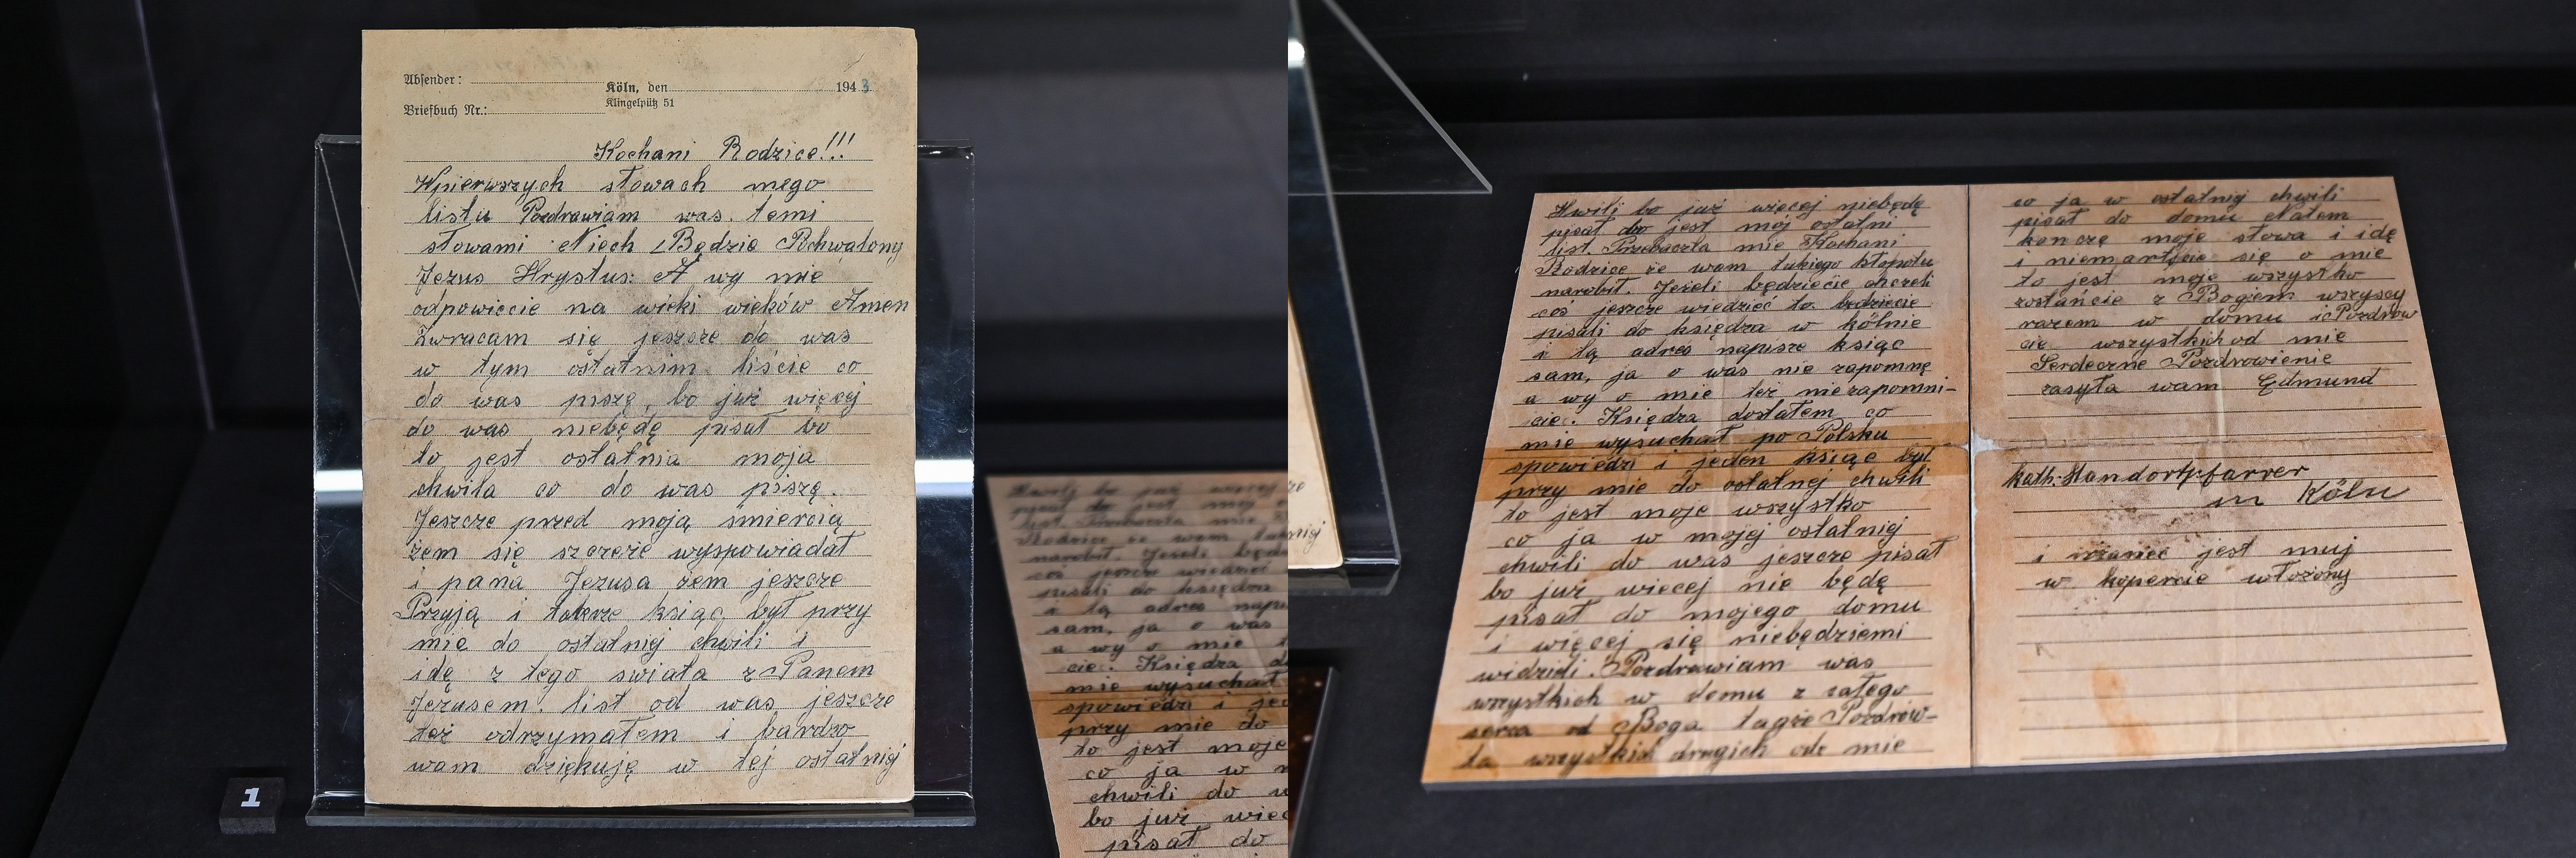 Absender:
Köln, den 1943
Klingelpütz 51
Briefbuch Nr.:
Kochani Rodzice!!!
Wpierwszych słowach mego
listu Pozdrawiam was. temi
słowami Niech Będzie Pohwalony
Jezus Hrystus: A wy mie
odpowiecie na wieki wieków Amen
Zwracam się jeszcze do was
w tym ostatnim liście co
do was piszę, bo już więcej
do was niebędę pisał bo
to jest ostatnia moja
chwila co do was piszę.
Jeszcze przed moją śmiercią
żem się szczeże wyspowiadał
i pana Jezusa żem jeszcze
Przyją i także książ był przy
mie do ostatniej chwili i
idę z tego swiata z Panem
Jezusem. list od was jeszcze
też odrzymałem i bardzo
wam dziękuję w tej ostatniej
1
Hwili bo już więcej niebędę
pisał do jest mój ostatni
list. Przebaczta mie Kochani
Rodzice że wam takiego kłopotu
narobił. Jeżeli będziecie chcieli
coś jeszcze wiedzieć to będziecie
pisali do księdza w kölnie
i tą adres napisze książ
sam, ja o was nie zapomnę
a wy o mie też niezapomni-
cie. Księdza dostałem co
mie wysuchał po Polsku
spowiedzi i jeden książ był
przy mie do ostatnej chwili
to jest moje wszystko
co ja w mojej ostatniej
chwili do was jeszcze pisał
bo już wiecej nie będę
pisał do mojego domu
i więcej się niebędziemi
widzieli. Pozdrawiam was
wszystkich w domu z całego
serca od Boga tagże Pozdrów-
ta wszystkich drugich ode mie
co ja w ostatniej chwili
pisał do domu Natem
kończę moje słowa i idę
i niemartfcie się o mie
to jest moje wszystko
zostańcie z Bogiem wszyscy
razem w domu i Pozdrów
cie wszystkich od mie
Serdeczne Pozdrowienie
zasyła wam Edmund
kath. Standortpfarrer
in Köln
i rożaniec jest muj
w kopercie włożony